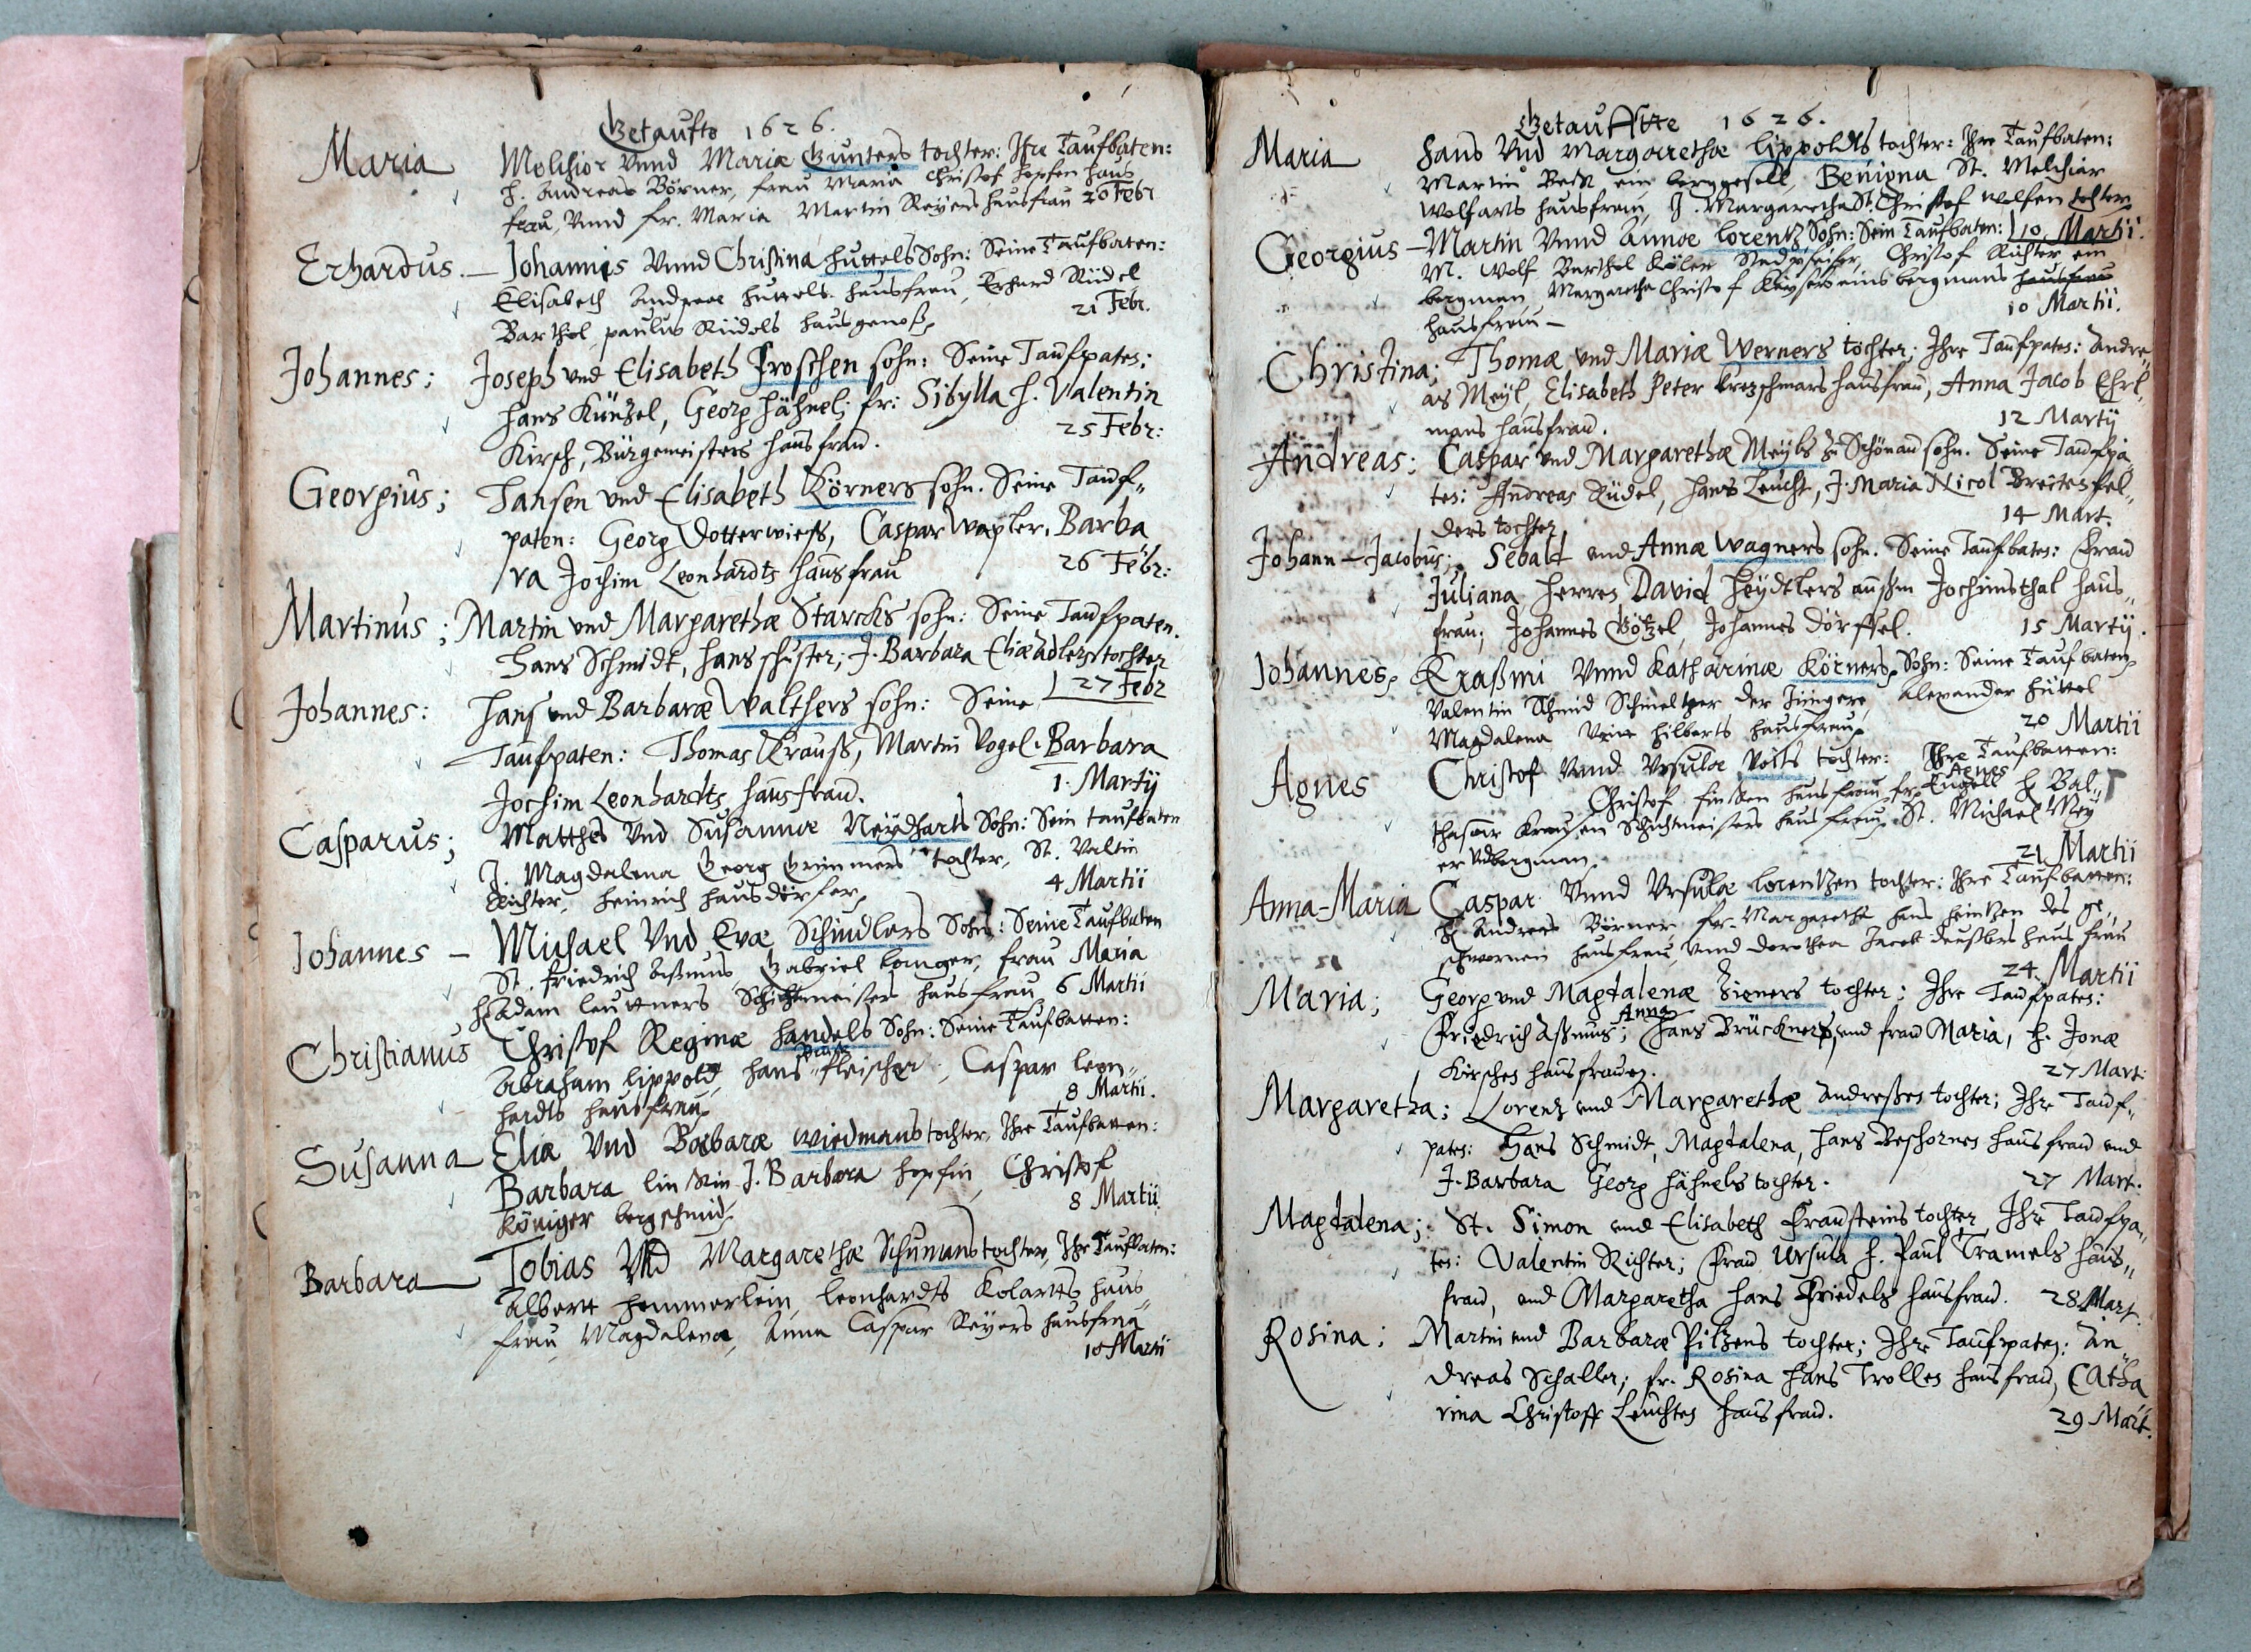 Getaufte 1626.
Maria Melchior Vnnd Mariæ Gunters tochter: Ihre Taufbaten:
H. Andreas Börner, frau Maria Christof Hopfen haus
frau, Vnnd fr. Maria Martin Reyers hausfrau 20 Febr
Erhardus. Johannis Vnnd Christina Huttels Sohn: Seine Taufbaten:
Elisabeth Andreæ Huttels hausfrau, Erhard Rüdel,
Barthol paulus Rüdels hausgenoß, 21 Febr.
Johannes; Joseph und Elisabeth Froschen sohn: Seine Taufpaten:
Hans Küntzel, Georg Hähnel; fr: Sibylla H. Valentin
Kirsch, Bürgemeisters hausfrau. 25 Febr:
Georgius; Hansen und Elisabeth Körners sohn. Seine Tauf„
paten: Georg Dotterwiess, Caspar Wapler, Barba
ra Jochim Leonhardts hausfrau 26 Febr:
Martinus; Martin und Margarethæ Starcks sohn: Seine Taufpaten.
Hans Schmidt, Hans schuster; J. Barbara Eliæ Adlers tochter
27 Febr
Johannes: Hans und Barbaræ Walthers sohn: Seine
Taufpaten: Thomas Krauß, Martin Vogel. Barbara
Jochim Leonhardts hausfrau. 1. Martij
Casparus; Matthes Vnd Susannæ Neydharts Sohn: Sein taufbaten
J. Magdalena Georg Grimmers tochter, St. Valtin
Richter, Heinrich Hausdörfer, 4 Martii
Johannes – Michael Vnd Evæ Schindlers Sohn: Seine Taufbaten
St. friedrich Aßmus Gabriel Langer, frau Maria
H Adam Leuttners Schichtmeisters hausfrau 6 Martii
Christianus Christof Reginæ Handels Sohn: Seine Taufbatten:
Abraham Lippold, Hans fleischer, Caspar Leon„
hardts hausfrau 8 Martii.
Susanna Eliæ Vnd Barbaræ Wiedmans tochter, Ihre Taufbatten:
Barbara J. Barbara Hopfin, Christof
Königer bergschmid. 8 Martii
Barbara Tobias Vnd Margarethæ Schumans tochter, Ihr Taufbaten:
Albertt Hemmerlein, Leonhardts Kolartts haus„
frau Magdalena, Anna Caspar Reyers hausfrau
10 Martii
Getauffte 1626.
Maria Hans Vnd Margarethæ Lippoldts tochter: Ihre Taufbaten:
Martin Beck ein berggesell, Benigna St. Melchiar
Wolfarts hausfrau, J. Margaretha St. Christof Wolfen tochter,
10 Martii.
Georgius – Martin Vnnd Annæ Lorentz Sohn: Sein Taufbaten:
M. Wolf Barthol Köler Stadpfeifer, Christof Richter ein
bergman, Margaretha Christof Keysers eins bergmans hausfrau
hausfrau – 10 Martii.
Christina; Thomæ und Mariæ Werners tochter; Ihre Taufpaten: Andre„
as Meyl, Elisabeth Peter Kretzschmars hausfrau, Anna Jacob Ehrl„
mans hausfrau. 12 Martij
Andreas; Caspar und Margarethæ Meyls zu Schönau sohn. Seine Taufpa
ten: Andreas Rüdel, Hans Leucht, J. Maria Nicol Breitenfel„
ders tochter 14 Mart.
Johann–Jacobus; Sebald und Annæ Wagners sohn. Seine Taufbaten: Frau
Juliana Herren David Heydlers außm Jochimsthal haus„
frau; Johannes Götzel, Johannes Dörffel. 15 Martij.
Johannes, Eraßmi Vnnd Katharinæ Körners, Sohn: Seine Taufbaten,
Valentin Schmid Schmeltzer der Jüngere, Alexander Hüttel
Magdalena Hilberts hausfrau, 20 Martii
Agnes Christof Vnnd Vrsulæ Voits tochter: Ihre Taufbatten:
Agnes
Christof hausfrau, fr. Engell H Bal„
thasar Krausen Schichtmeisters hausfrau, St. Michael Mey
er bergman, 21 Martii
Anna-Maria Caspar Vnnd Vrsulæ Lorentzen tochter: Ihre Taufbatten:
H Andreas Börner, fr. Margaretha Hans Heintzen des ge„
schwornen hausfrau, Vnnd Dorothea Jacob haus frau
24. Martii
Maria; Georg und Magdalenæ Zieners tochter; Ihre Taufpaten:
Anna
Friedrich Aßmus; Hans Brückners, und frau Maria, H. Jonæ
Kirschen hausfrauen. 27 Mart:
Margaretha; Lorentz und Margarethæ Andreßen tochter; Ihre Tauf„
paten: Hans Schmidt, Magdalena, Hans Beschornes hausfrau und
J. Barbara Georg Hähnels tochter. 27 Mart.
Magdalena; St. Simon und Elisabeth Fraunsteins tochter Ihre Taufpa„
ten: Valentin Richter; Frau Ursula H. Paul Tramels haus„
frau, und Margaretha Hans Friedels hausfrau. 28 Mart.
Rosina; Martin und Barbaræ Piltzens tochter; Ihre Taufpaten: An„
dreas Schaller; fr. Rosina Hans Trolles hausfrau, Catha
rina Christoff Leuchten hausfrau. 29 Mart.